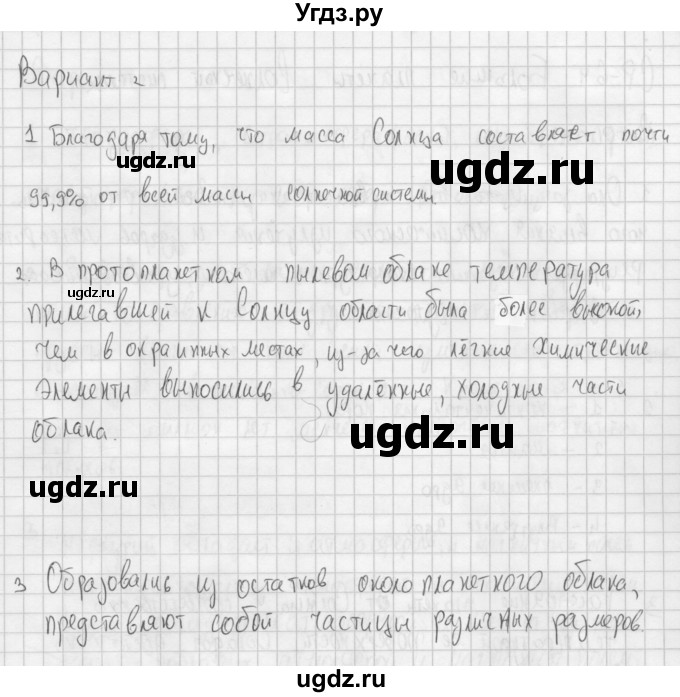 Угдз.ру
Вариант 2
1 Благодаря тому, что масса Солнца составляет почти
ugdz.ru
ugdz.ru
99,9% от всей массы солнечной системы
2. В протопланетном пылевом облаке температура
ugdz.ru
прилегавшей к Солнцу области была более высокой,
чем в окраинных местах, из-за чего лёгкие химические
элементы выносились в удалённые, холодные части
облака.
ugdz.ru
ugdz.ru
3 Образовались из остатков околопланетного облака,
представляют собой частицы различных размеров.
ugdz.ru